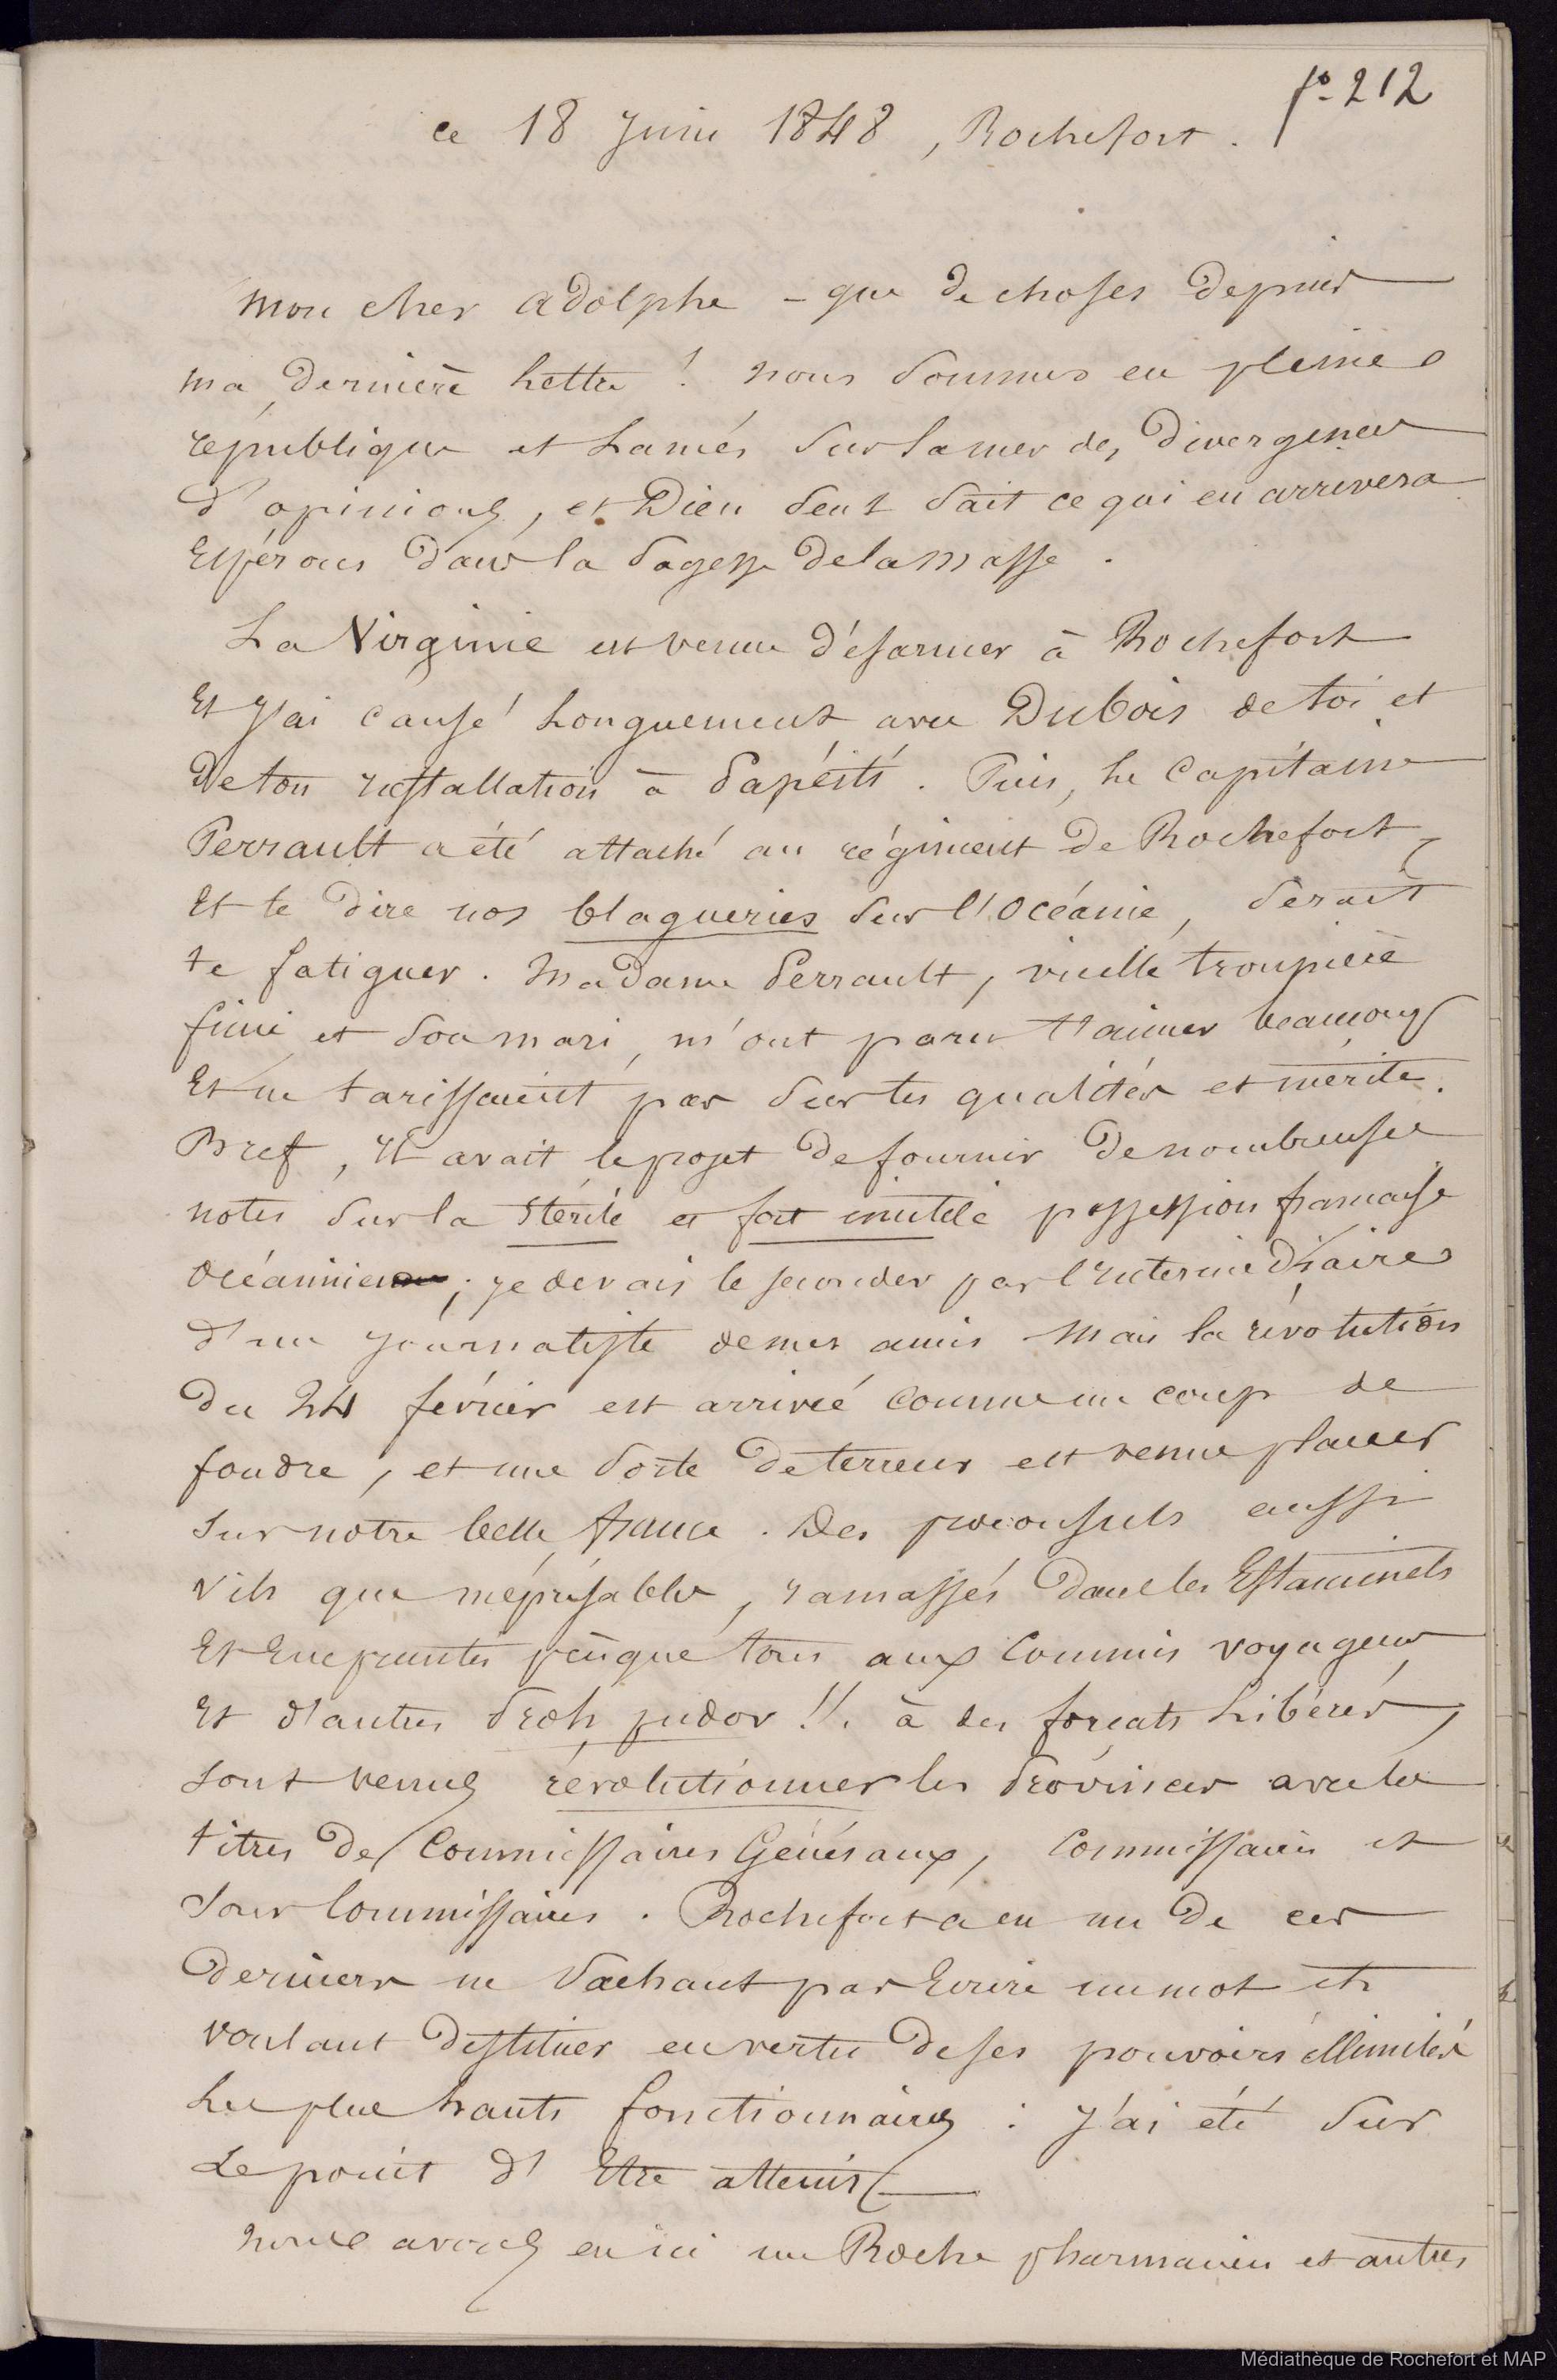 fo. 212
ce 18 Juin 1848, Rochefort.
Mon cher adolphe - que de choses depuis
ma derniere Lettre ! nous sommes en pleine
republique et Lancés sur la mer des divergences
d'opinions, et Dieu seul sait ce qui en arrivera
Espérons dans la sagesse de la Masse.
La Virginie est venue désarmer à Rochefort
Et J'ai causé Longuement avec Dubois de toi et
de ton installation à Papéiti. Puis, Le Capitaine
Perrault a été attaché au régiment de Rochefort,
Et te dire nos blagueries sur l'Océanie, serait
te fatiguer. Madame Perrault, vieille troupière
finie et son mari, m'ont paru t'aimer beaucoup
Et ne tarissaient pas sur tes qualités et mérite.
Bref, Il avait le projet de fournir de nombreuses
notes sur la stérile et fort inutile possession française
océanienne; je devais le seconder par l'Intermédiaire
d'un Journaliste de mes amis Mais la révolution
du 24 février est arrivée comme un coup de
foudre, et une sorte de terreur est venue planer
sur notre belle france. Des proconsuls aussi
vils que méprisables, ramassés dans les Estaminets
Et Empruntés presque tous aux Commis voyageurs
Et d'autres proh pudor !!. à des forçats Libérés,
sont venus révolutionner les provinces avec les
titres de Commissaires Généraux, Commissaires et
sous Commissaires. Rochefort a eu un de ces
derniers ne sachant pas Ecrire un mot et
voulant destituer en vertu de ses pouvoirs illimités
Les plus hauts fonctionnaires : J'ai été sur
Le point d'Etre atteint
Nous avons eu ici un Roche pharmacien et autres
Médiathèque de Rochefort et MAP